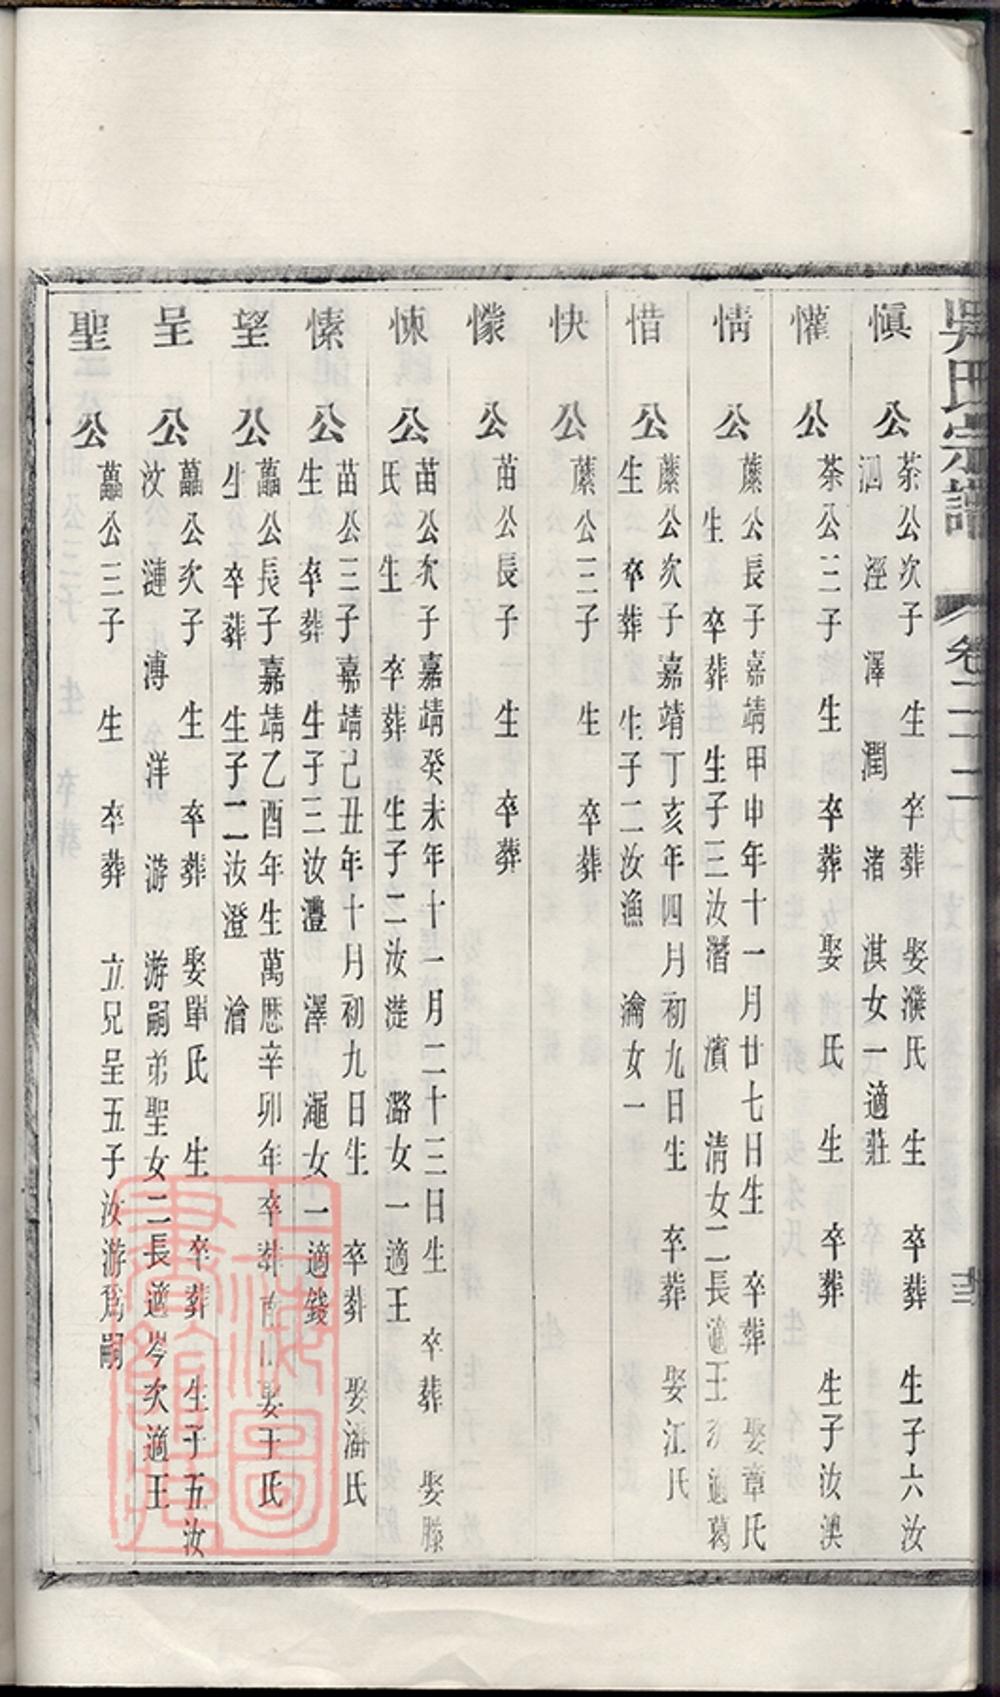 吳氏宗譜 卷二十二 十三
愼公 茶公次子 生 卒葬 娶濮氏 生 卒葬 生子六汝
泗 涇 澤 潤 渚 淇女一適莊
懽公 茶公三子 生 卒葬 娶 氏 生 卒葬 生子汝澳
情公 藗公長子嘉靖甲申年十一月廿七日生 卒葬 娶章氏
生 卒葬 生子三汝潛 濱 淸女二長適王次適葛
惜公 藗公次子嘉靖丁亥年四月初九日生 卒葬 娶江氏
生 卒葬 生子二汝漁 瀹女一
快公 藗公三子 生 卒葬
懞公 苗公長子 生 卒葬
悚公 苗公次子嘉靖癸未年十一月二十三日生 卒葬 娶滕
氏 生 卒葬 生子二汝漇 潞女一適王
愫公 苗公三子嘉靖己丑年十月初九日生 卒葬 娶潘氏
生 卒葬 生子三汝灃 澤 澠女一適錢
望公 藟公長子嘉靖乙酉年生萬歷辛卯年卒葬南山娶于氏
生 卒葬 生子二汝澄 澮
呈公 藟公次子 生 卒葬 娶單氏 生 卒葬 生子五汝
汶 漣 溥 洋 游 游嗣弟聖女二長適岑次適王
聖公 藟公三子 生 卒葬 立兄呈五子汝游爲嗣
上海圖書館藏